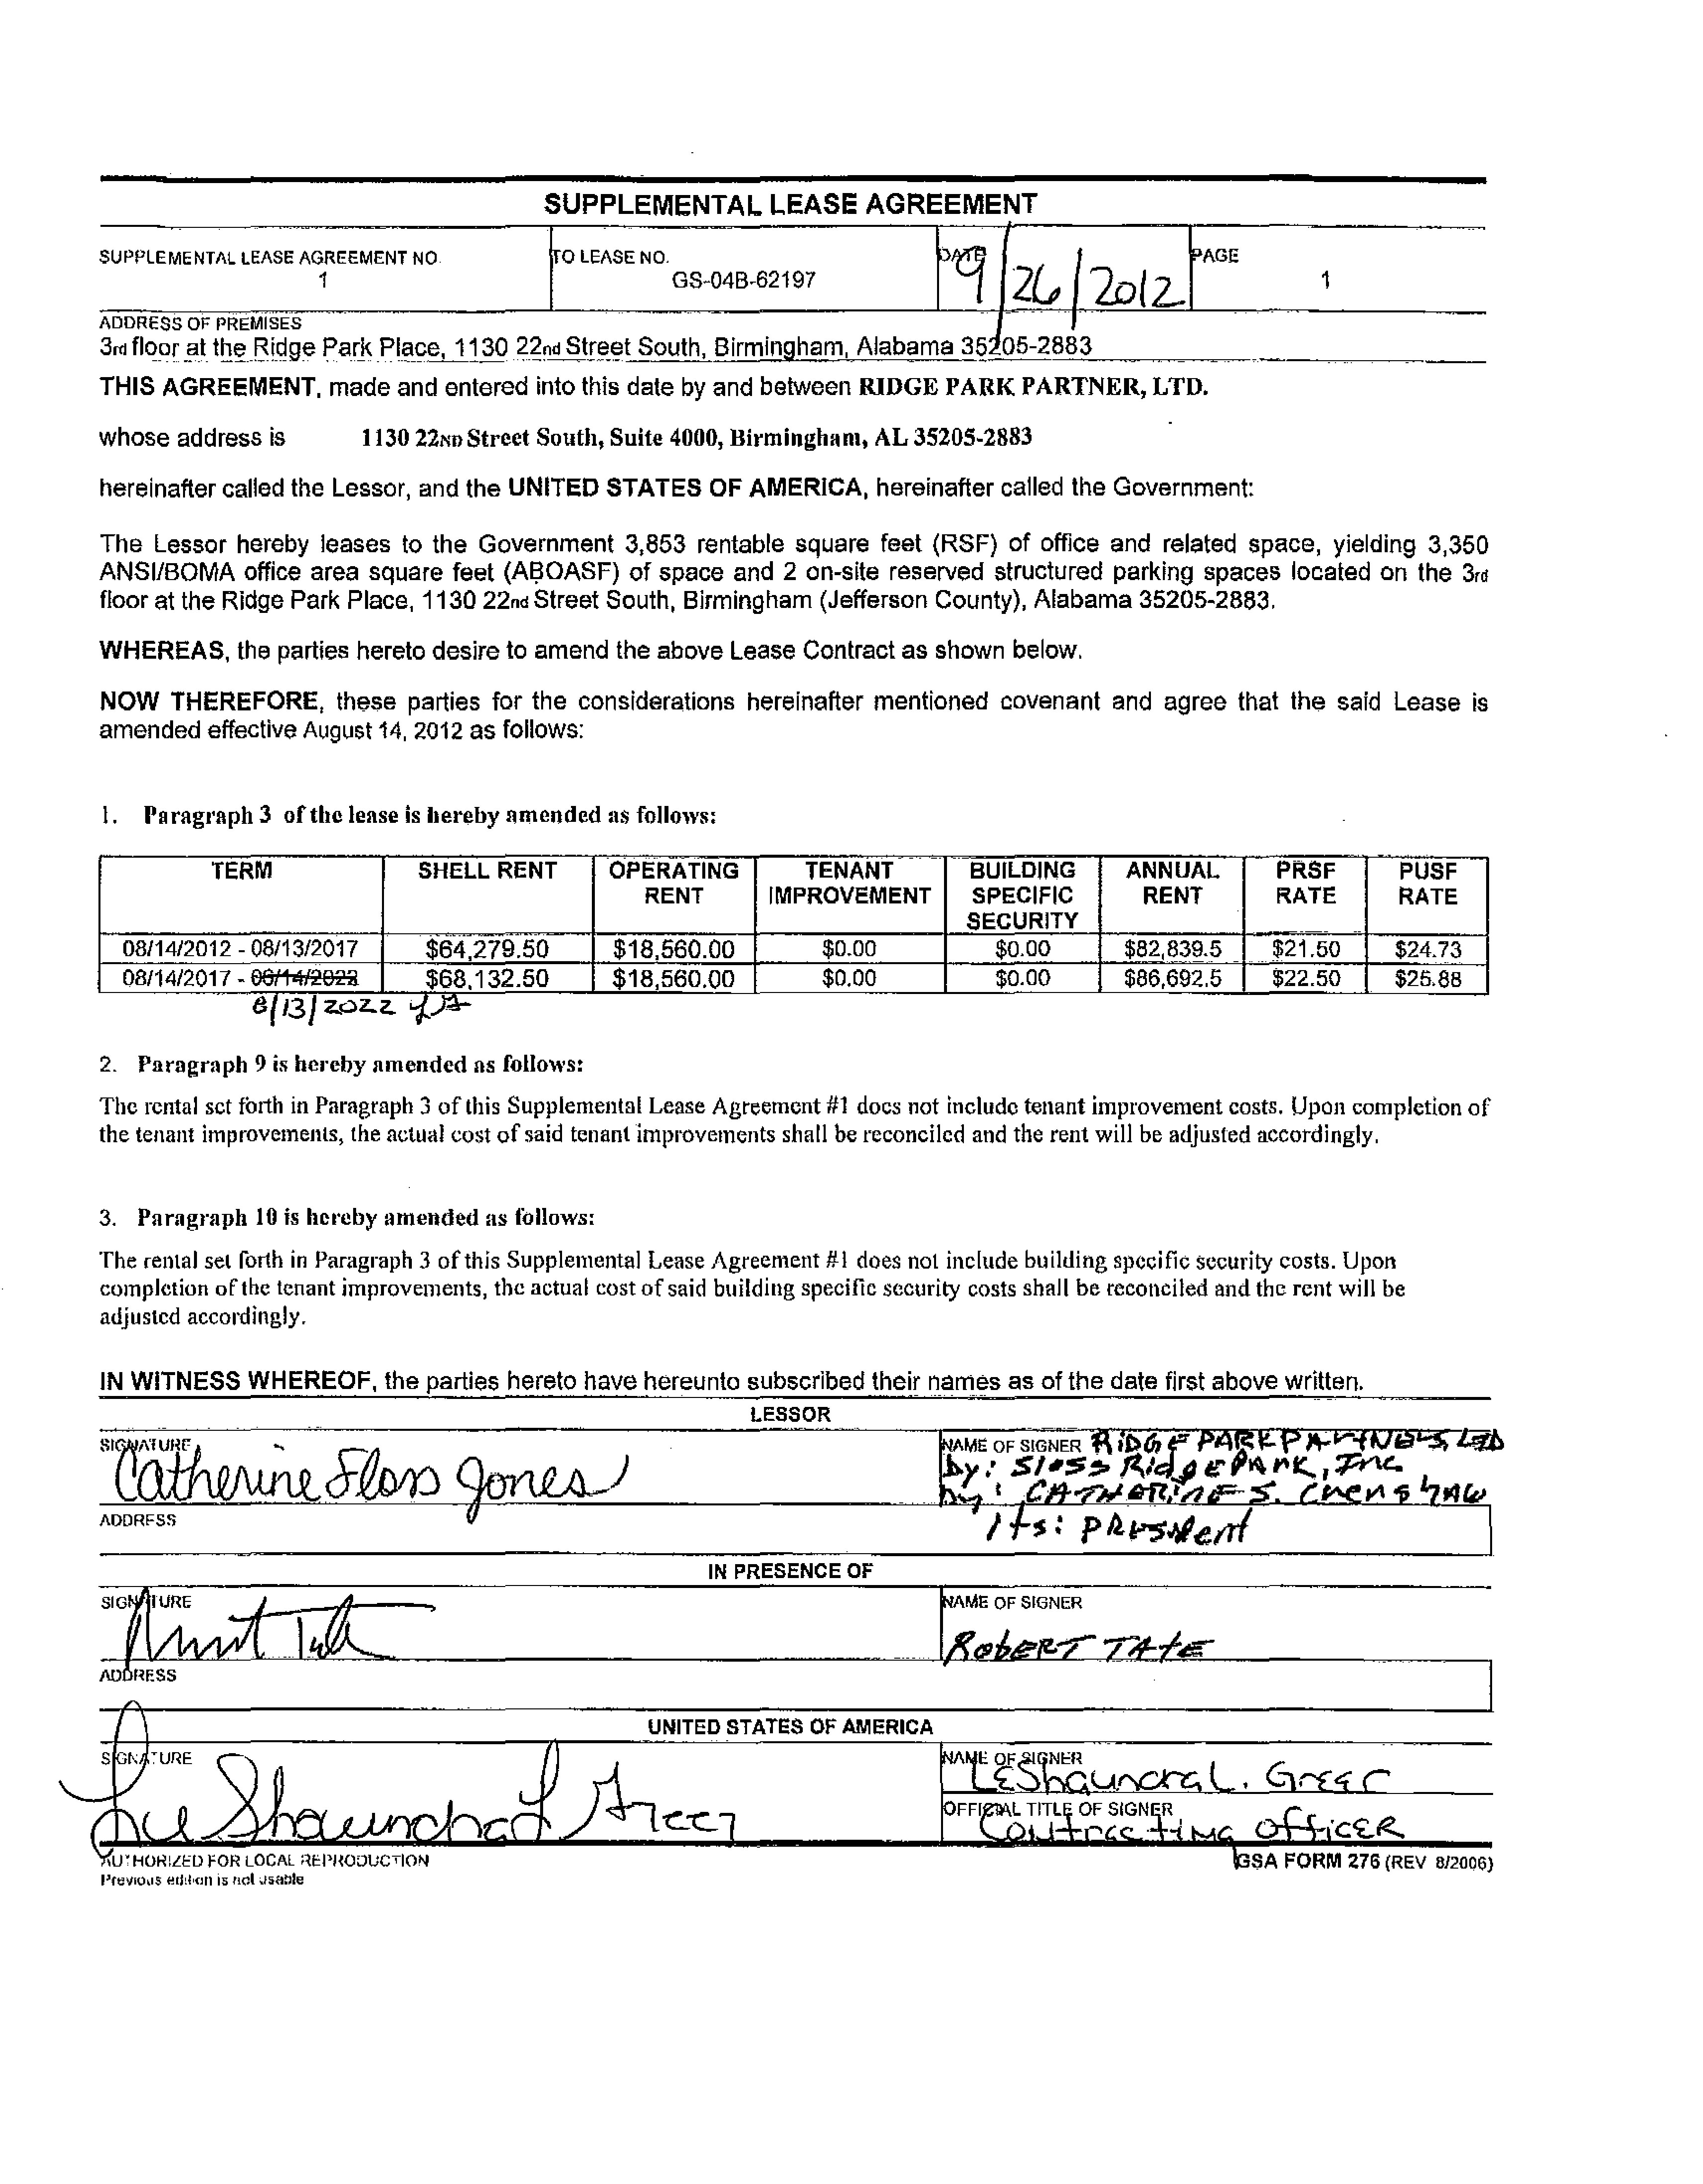 SUPPLEMENTAL LEASE AGREEMENT
SUPPLEMENTAL LEASE AGREEMENT NO.
1
TO LEASE NO.
GS-04B-62197
DATE
9/26/2012
PAGE
1
ADDRESS OF PREMISES
3rd floor at the Ridge Park Place, 1130 22nd Street South, Birmingham, Alabama 35205-2883
THIS AGREEMENT, made and entered into this date by and between RIDGE PARK PARTNER, LTD.
whose address is 1130 22ND Street South, Suite 4000, Birmingham, AL 35205-2883
hereinafter called the Lessor, and the UNITED STATES OF AMERICA, hereinafter called the Government:
The Lessor hereby leases to the Government 3,853 rentable square feet (RSF) of office and related space, yielding 3,350
ANSI/BOMA office area square feet (ABOASF) of space and 2 on-site reserved structured parking spaces located on the 3rd
floor at the Ridge Park Place, 1130 22nd Street South, Birmingham (Jefferson County), Alabama 35205-2883.
WHEREAS, the parties hereto desire to amend the above Lease Contract as shown below.
NOW THEREFORE, these parties for the considerations hereinafter mentioned covenant and agree that the said Lease is
amended effective August 14, 2012 as follows:
1. Paragraph 3 of the lease is hereby amended as follows:
TERM SHELL RENT OPERATING RENT TENANT IMPROVEMENT BUILDING SPECIFIC SECURITY ANNUAL RENT PRSF RATE PUSF RATE
08/14/2012 - 08/13/2017 $64,279.50 $18,560.00 $0.00 $0.00 $82,839.5 $21.50 $24.73
08/14/2017 - 08/14/2022 $68,132.50 $18,560.00 $0.00 $0.00 $86,692.5 $22.50 $25.88
8/13/2022
2. Paragraph 9 is hereby amended as follows:
The rental set forth in Paragraph 3 of this Supplemental Lease Agreement #1 does not include tenant improvement costs. Upon completion of
the tenant improvements, the actual cost of said tenant improvements shall be reconciled and the rent will be adjusted accordingly.
3. Paragraph 10 is hereby amended as follows:
The rental set forth in Paragraph 3 of this Supplemental Lease Agreement #1 does not include building specific security costs. Upon
completion of the tenant improvements, the actual cost of said building specific security costs shall be reconciled and the rent will be
adjusted accordingly.
IN WITNESS WHEREOF, the parties hereto have hereunto subscribed their names as of the date first above written.
LESSOR
SIGNATURE
Catherine Sloss Jones
NAME OF SIGNER RIDGE PARK PARTNERS, LTD
by: Sloss Ridge Park, Inc.
by: CATHERINE S. Crenshaw
Its: President
ADDRESS
IN PRESENCE OF
SIGNATURE
NAME OF SIGNER
ROBERT TATE
ADDRESS
UNITED STATES OF AMERICA
SIGNATURE
LeShaundra L Greer
NAME OF SIGNER
LeShaundra L. Greer
OFFICIAL TITLE OF SIGNER
Contracting Officer
AUTHORIZED FOR LOCAL REPRODUCTION
Previous edition is not usable
GSA FORM 276 (REV 8/2006)